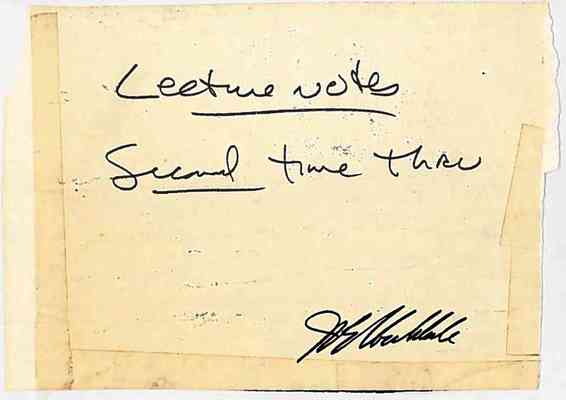 Lecture notes
Second time thru